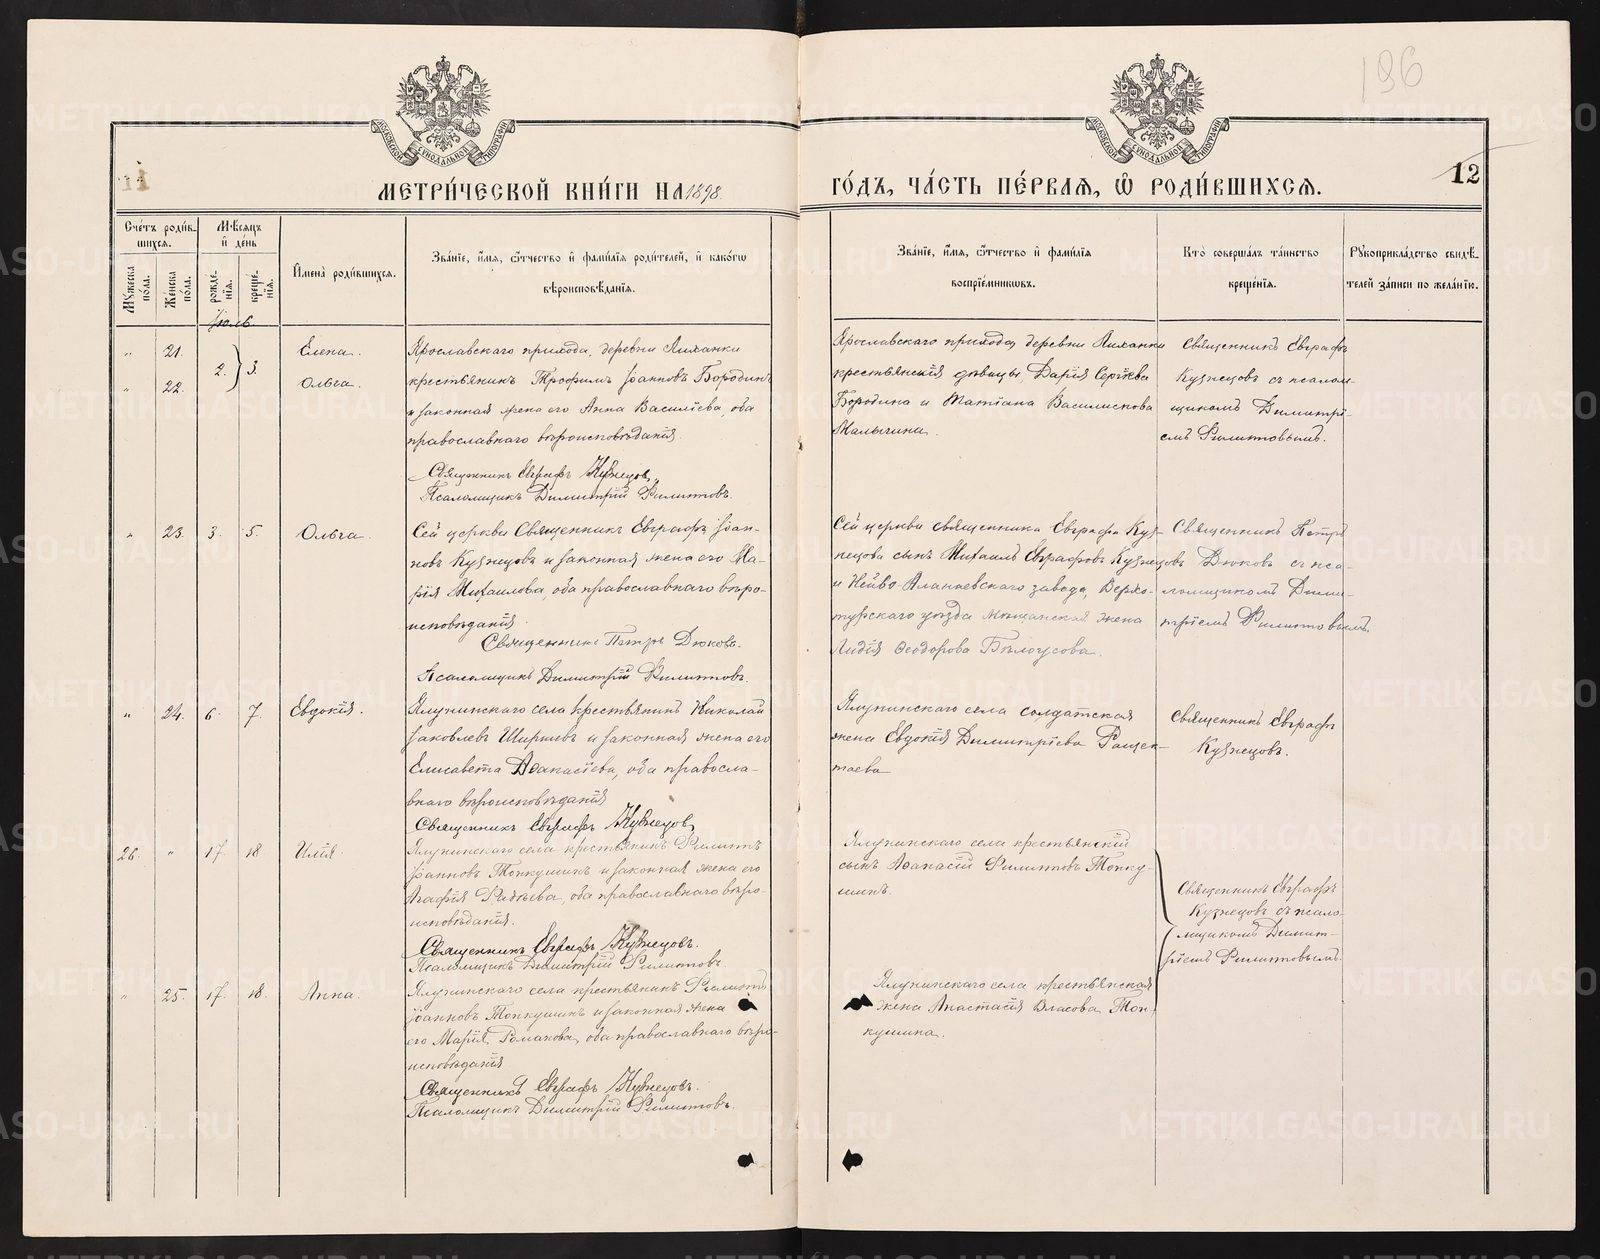 196
МОСКОВСКОЙ СУНОДАЛЬНОЙ ТИПОГРАФІИ
МОСКОВСКОЙ СУНОДАЛЬНОЙ ТИПОГРАФІИ
11
12
МЕТРИ́ЧЕСКОЙ КНИ́ГИ НА 1898
ГО́ДЪ, ЧА́СТЬ ПЕ́РВАѦ, Ѽ РОДИ́ВШИХСѦ.
Сче́тъ роди́вшихсѧ.
Мꙋ́жеска по́ла.
Же́нска по́ла.
Мѣ́сѧцъ и҆ де́нь
рожде́нїѧ.
креще́нїѧ.
И҆мена̀ роди́вшихсѧ.
Зва́нїе, и҆́мѧ, ѻ҆́тчество и҆ фами́лїѧ роди́телей, и҆ како́гѡ
вѣроисповѣ́данїѧ.
Зва́нїе, и҆́мѧ, ѻ҆́тчество и҆ фами́лїѧ
воспрїе́мникѡвъ.
Кто̀ соверша́лъ та́инство
креще́нїѧ.
Рꙋкоприкла́дство свидѣ́телей за́писи по жела́нїю.
Іюль
" 21. 2. 3. Елена.
" 22. Ольга.
Ярославскаго прихода, деревни Лиханки
крестьянинъ Трофимъ Іоанновъ Бородинъ
и законная жена его Анна Василіева, оба
православнаго вѣроисповѣданія.
Священникъ Евграфъ Кузнецовъ,
Псаломщикъ Димитрій Филитовъ.
Ярославскаго прихода, деревни Лиханки
крестьянскія дѣвицы Дарія Сергіева
Бородина и Татіана Василискова
Малыгина.
Священникъ Евграфъ
Кузнецовъ съ псалом-
щикомъ Димитрі-
емъ Филитовымъ.
" 23. 3. 5. Ольга.
Сей церкви Священникъ Евграфъ Іоан-
новъ Кузнецовъ и законная жена его Ма-
рія Михаилова, оба православнаго вѣро-
исповѣданія.
Священникъ Петръ Дюковъ.
Псаломщикъ Димитрій Филитовъ.
Сей церкви священника Евграфа Куз-
нецова сынъ Михаилъ Евграфовъ Кузнецовъ
и Нейво-Алапаевскаго завода, Верхо-
турскаго уѣзда мѣщанская жена
Лидія Ѳеодорова Бѣлоусова.
Священникъ Петръ
Дюковъ съ пса-
ломщикомъ Дими-
тріемъ Филитовымъ.
" 24. 6. 7. Евдокія.
Ялунинскаго села крестьянинъ Николай
Іаковлевъ Ширшевъ и законная жена его
Елисавета Аѳанасіева, оба правосла-
внаго вѣроисповѣданія
Священникъ Евграфъ Кузнецовъ,
Ялунинскаго села солдатская
жена Евдокія Димитріева Ращек-
таева
Священникъ Евграфъ
Кузнецовъ.
26. " 17. 18 Илія.
Ялунинскаго села крестьянинъ Филитъ
Іоанновъ Топкушинъ и законная жена его
Агафія Фадѣева, оба православнаго вѣро-
исповѣданія.
Священникъ Евграфъ Кузнецовъ.
Псаломщикъ Димитрій Филитовъ.
Ялунинскаго села крестьянскій
сынъ Аѳанасій Филитовъ Топку-
шинъ.
Священникъ Евграфъ
Кузнецовъ съ псало-
мщикомъ Димит-
ріемъ Филитовымъ.
" 25. 17. 18. Анна.
Ялунинскаго села крестьянинъ Филитъ
Іоанновъ Топкушинъ и законная жена
его Марія Романова, оба православнаго вѣро-
исповѣданія
Священникъ Евграфъ Кузнецовъ.
Псаломщикъ Димитрій Филитовъ.
Ялунинскаго села крестьянская
жена Анастасія Власова Топ-
кушина.